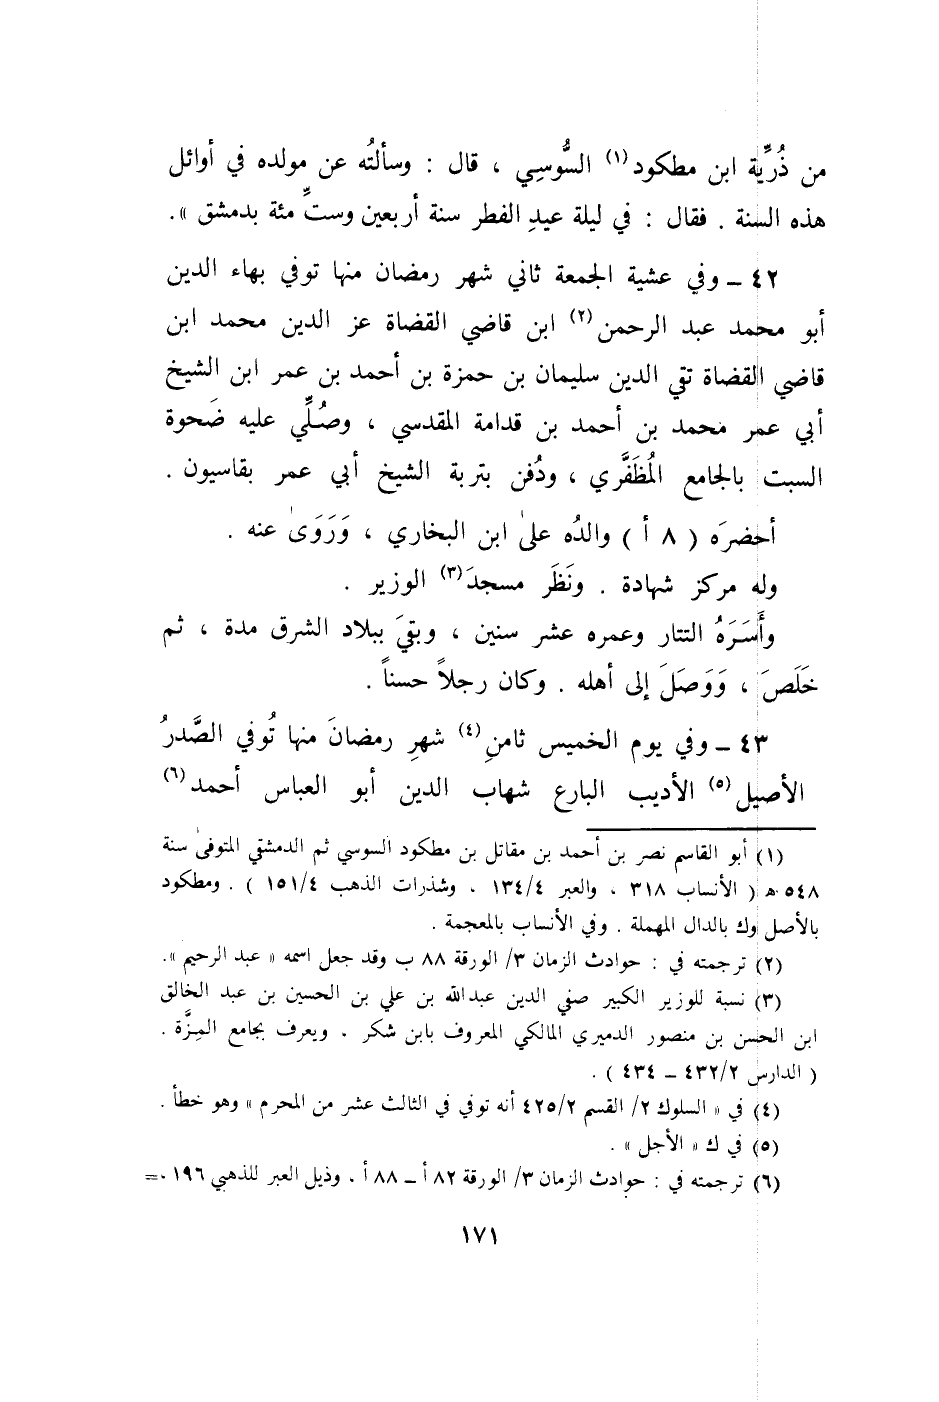 من ذُرِّية ابن مطكود(١) السُّوسِي ، قال : وسألتُه عن مولده في أوائل
هذه السنة . فقال : في ليلة عيدِ الفطر سنة أربعين وستِّ مئة بدمشق » .
٤٢ ــ وفي عشية الجمعة ثاني شهر رمضان منها توفي بهاء الدين
أبو محمد عبد الرحمن(٢) ابن قاضي القضاة عز الدين محمد ابن
قاضي القضاة تقي الدين سليمان بن حمزة بن أحمد بن عمر ابن الشيخ
أبي عمر محمد بن أحمد بن قدامة المقدسي ، وصُلِّي عليه ضَحوة
السبت بالجامع المُظَفَّري ، ودُفن بتربة الشيخ أبي عمر بقاسيون .
أحضرَه ( ٨ أ ) والدُه علىٰ ابن البخاري ، وَرَوَىٰ عنه .
وله مركز شهادة . ونَظَر مسجدَ(٣) الوزير .
وأَسَرَهُ التتار وعمره عشر سنين ، وبقيَ ببلاد الشرق مدة ، ثم
خَلَصَ ، وَوَصَلَ إلى أهله . وكان رجلاً حسناً .
٤٣ ــ وفي يوم الخميس ثامنِ(٤) شهرِ رمضانَ منها تُوفي الصَّدرُ
الأصيل(٥) الأديب البارع شهاب الدين أبو العباس أحمد(٦)
(١) أبو القاسم نصر بن أحمد بن مقاتل بن مطكود السوسي ثم الدمشقي المتوفىٰ سنة
٥٤٨ هـ ( الأنساب ٣١٨ ، والعبر ١٣٤/٤ ، وشذرات الذهب ١٥١/٤ ) . ومطكود
بالأصل وك بالدال المهملة . وفي الأنساب بالمعجمة .
(٢) ترجمته في : حوادث الزمان ٣/ الورقة ٨٨ ب وقد جعل اسمه « عبد الرحيم » .
(٣) نسبة للوزير الكبير صفي الدين عبدالله بن علي بن الحسين بن عبد الخالق
ابن الحسن بن منصور الدميري المالكي المعروف بابن شكر . ويعرف بجامع المِزَّة .
( الدارس ٤٣٢/٢ ــ ٤٣٤ ) .
(٤) في « السلوك ٢/ القسم ٤٢٥/٢ أنه توفي في الثالث عشر من المحرم » وهو خطأ .
(٥) في ك « الأجل » .
(٦) ترجمته في : حوادث الزمان ٣/ الورقة ٨٢ أ ــ ٨٨ أ ، وذيل العبر للذهبي ١٩٦ .=
١٧١